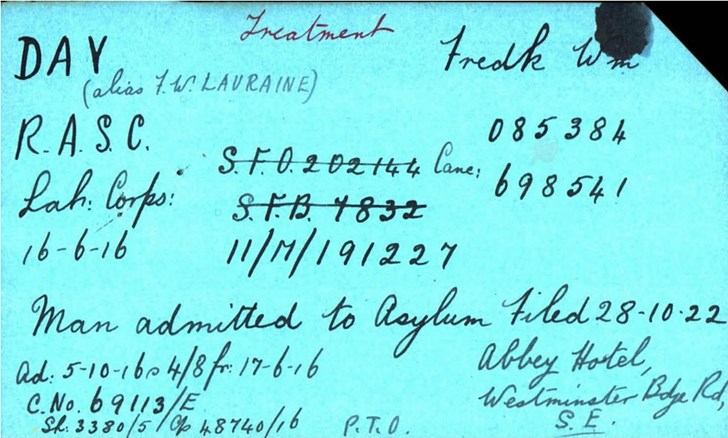 Treatment
DAY Fredk Wm
(alias F.W. LAURAINE)
R.A.S.C. 085384
S.F.O. 202144 Canc: 698541
Lab: Corps: S.F.B. 7832
16-6-16 11/M/191227
Man admitted to Asylum Filed 28-10-22
Ad: 5-10-16 @ 4/8 fr: 17-6-16 Abbey Hotel,
C.No. 69113/E Westminster Bdge Rd,
Sh. 3380/5/Cp 48740/16 P.T.O. S.E.